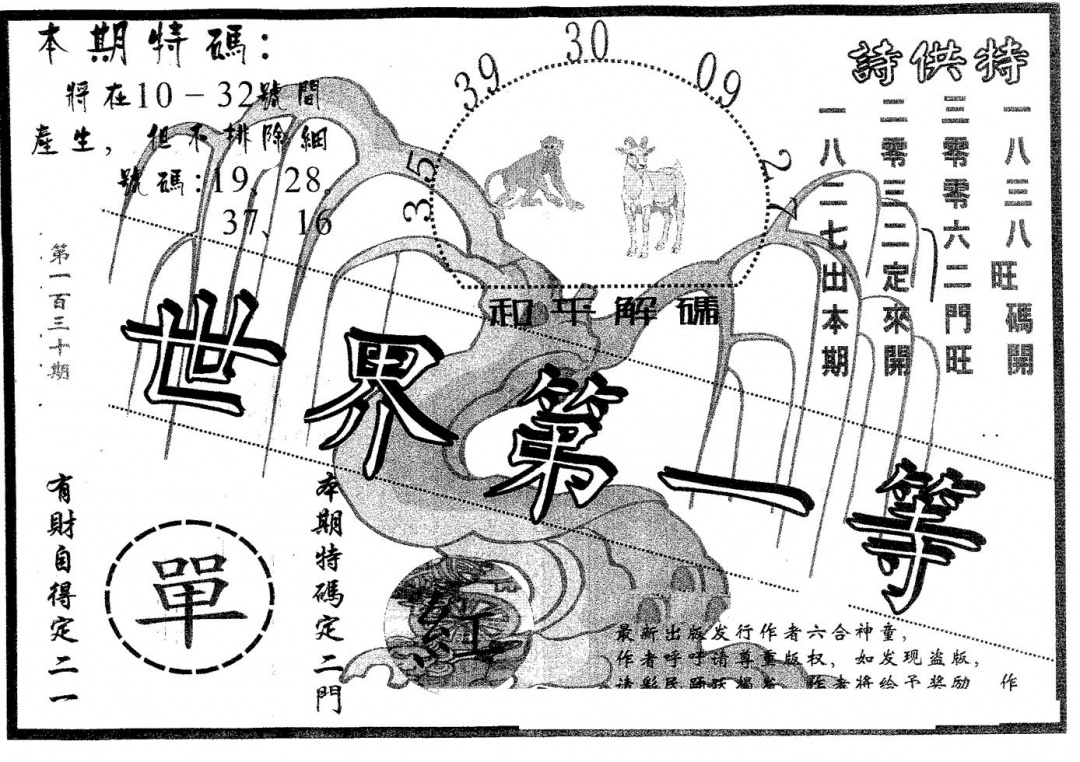 本期特碼:
將在10-32號間
產生, 但不排除細
號碼:19、28。
37、16
39
30
09
35
27
特供詩
一八三八旺碼開
三零零六二門旺
二零三二定來開
一八二七出本期
和平解碼
第一百三十期
世界第一等
本期特碼定二門
單
有財自得定二一
紅
最新出版发行作者六合神童,
作者呼吁请尊重版权, 如发现盗版,
请彩民踊跃揭发 作者将给予奖励 作